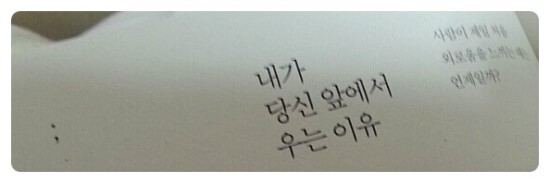 ;
내가
당신 앞에서
우는 이유
사람이 제일
외로움을 느끼는
언제일까?